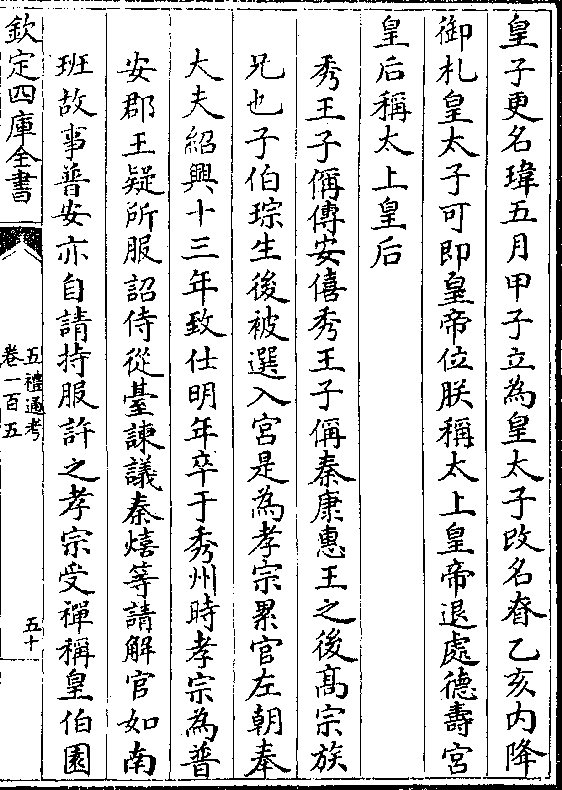 皇子更名瑋五月甲子立為皇太子改名昚乙亥内降
御札皇太子可即皇帝位朕稱太上皇帝退處德壽宮
皇后稱太上皇后
秀王子偁傳安僖秀王子偁秦康惠王之後髙宗族
兄也子伯琮生後被選入宮是為孝宗累官左朝奉
大夫紹興十三年致仕明年卒于秀州時孝宗為普
安郡王疑所服詔侍從臺諫議秦熺等請解官如南
班故事普安亦自請持服許之孝宗受禪稱皇伯園
欽定四庫全書
五禮通考
卷一百五
五十